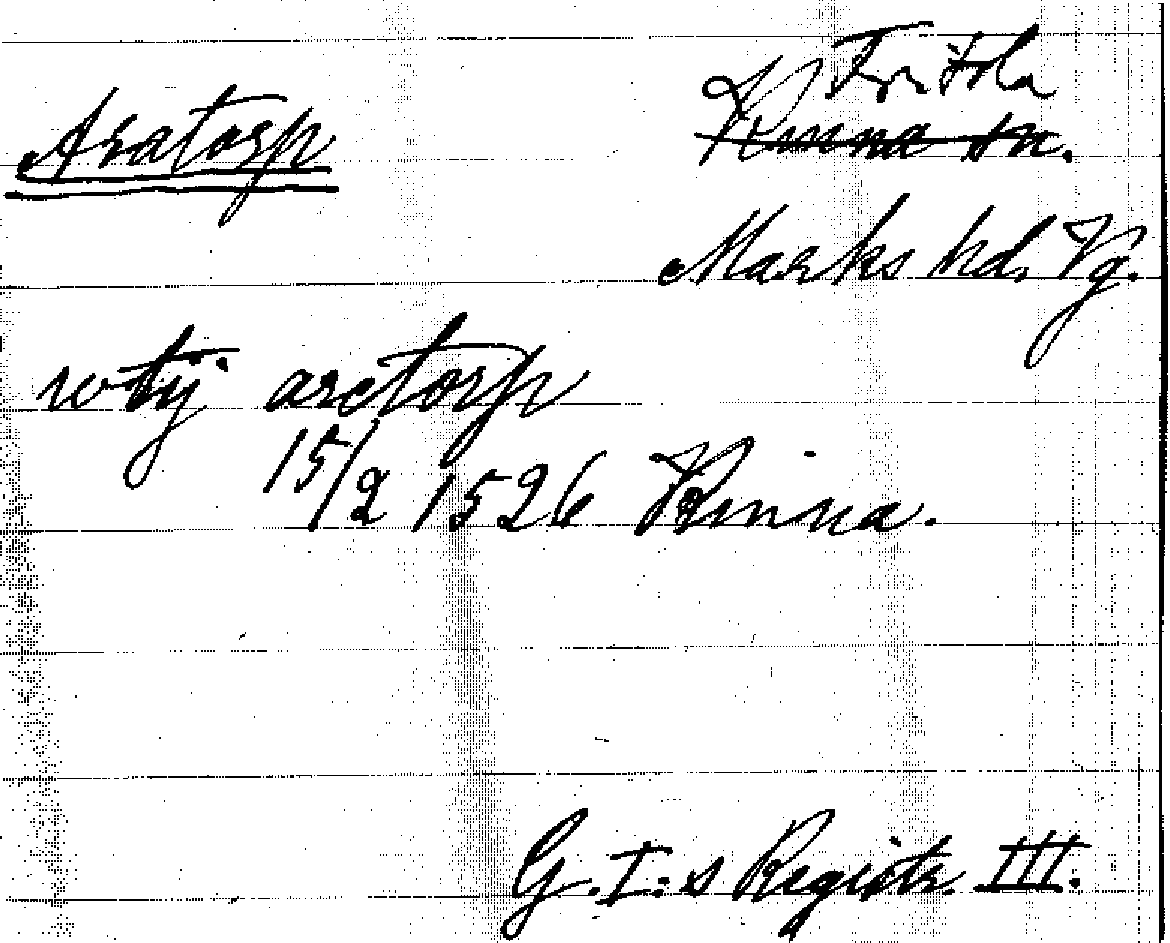 Fritsla
Aratorp Kinna sn.
Marks hd. Vg.
wtij aretorp
15/2 1526 Kinna.
G. I:s Registr. III.